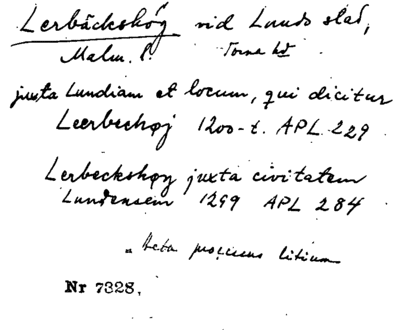 Lerbäckshög vid Lunds stad,
Malm. l. Torna hd
juxta Lundiam et locum, qui dicitur
Leerbechøj 1200-t. APL 229
Lerbeckshøy juxta civitatem
Lundensem 1299 APL 284
„ Acta processus litium
Nr 7328.